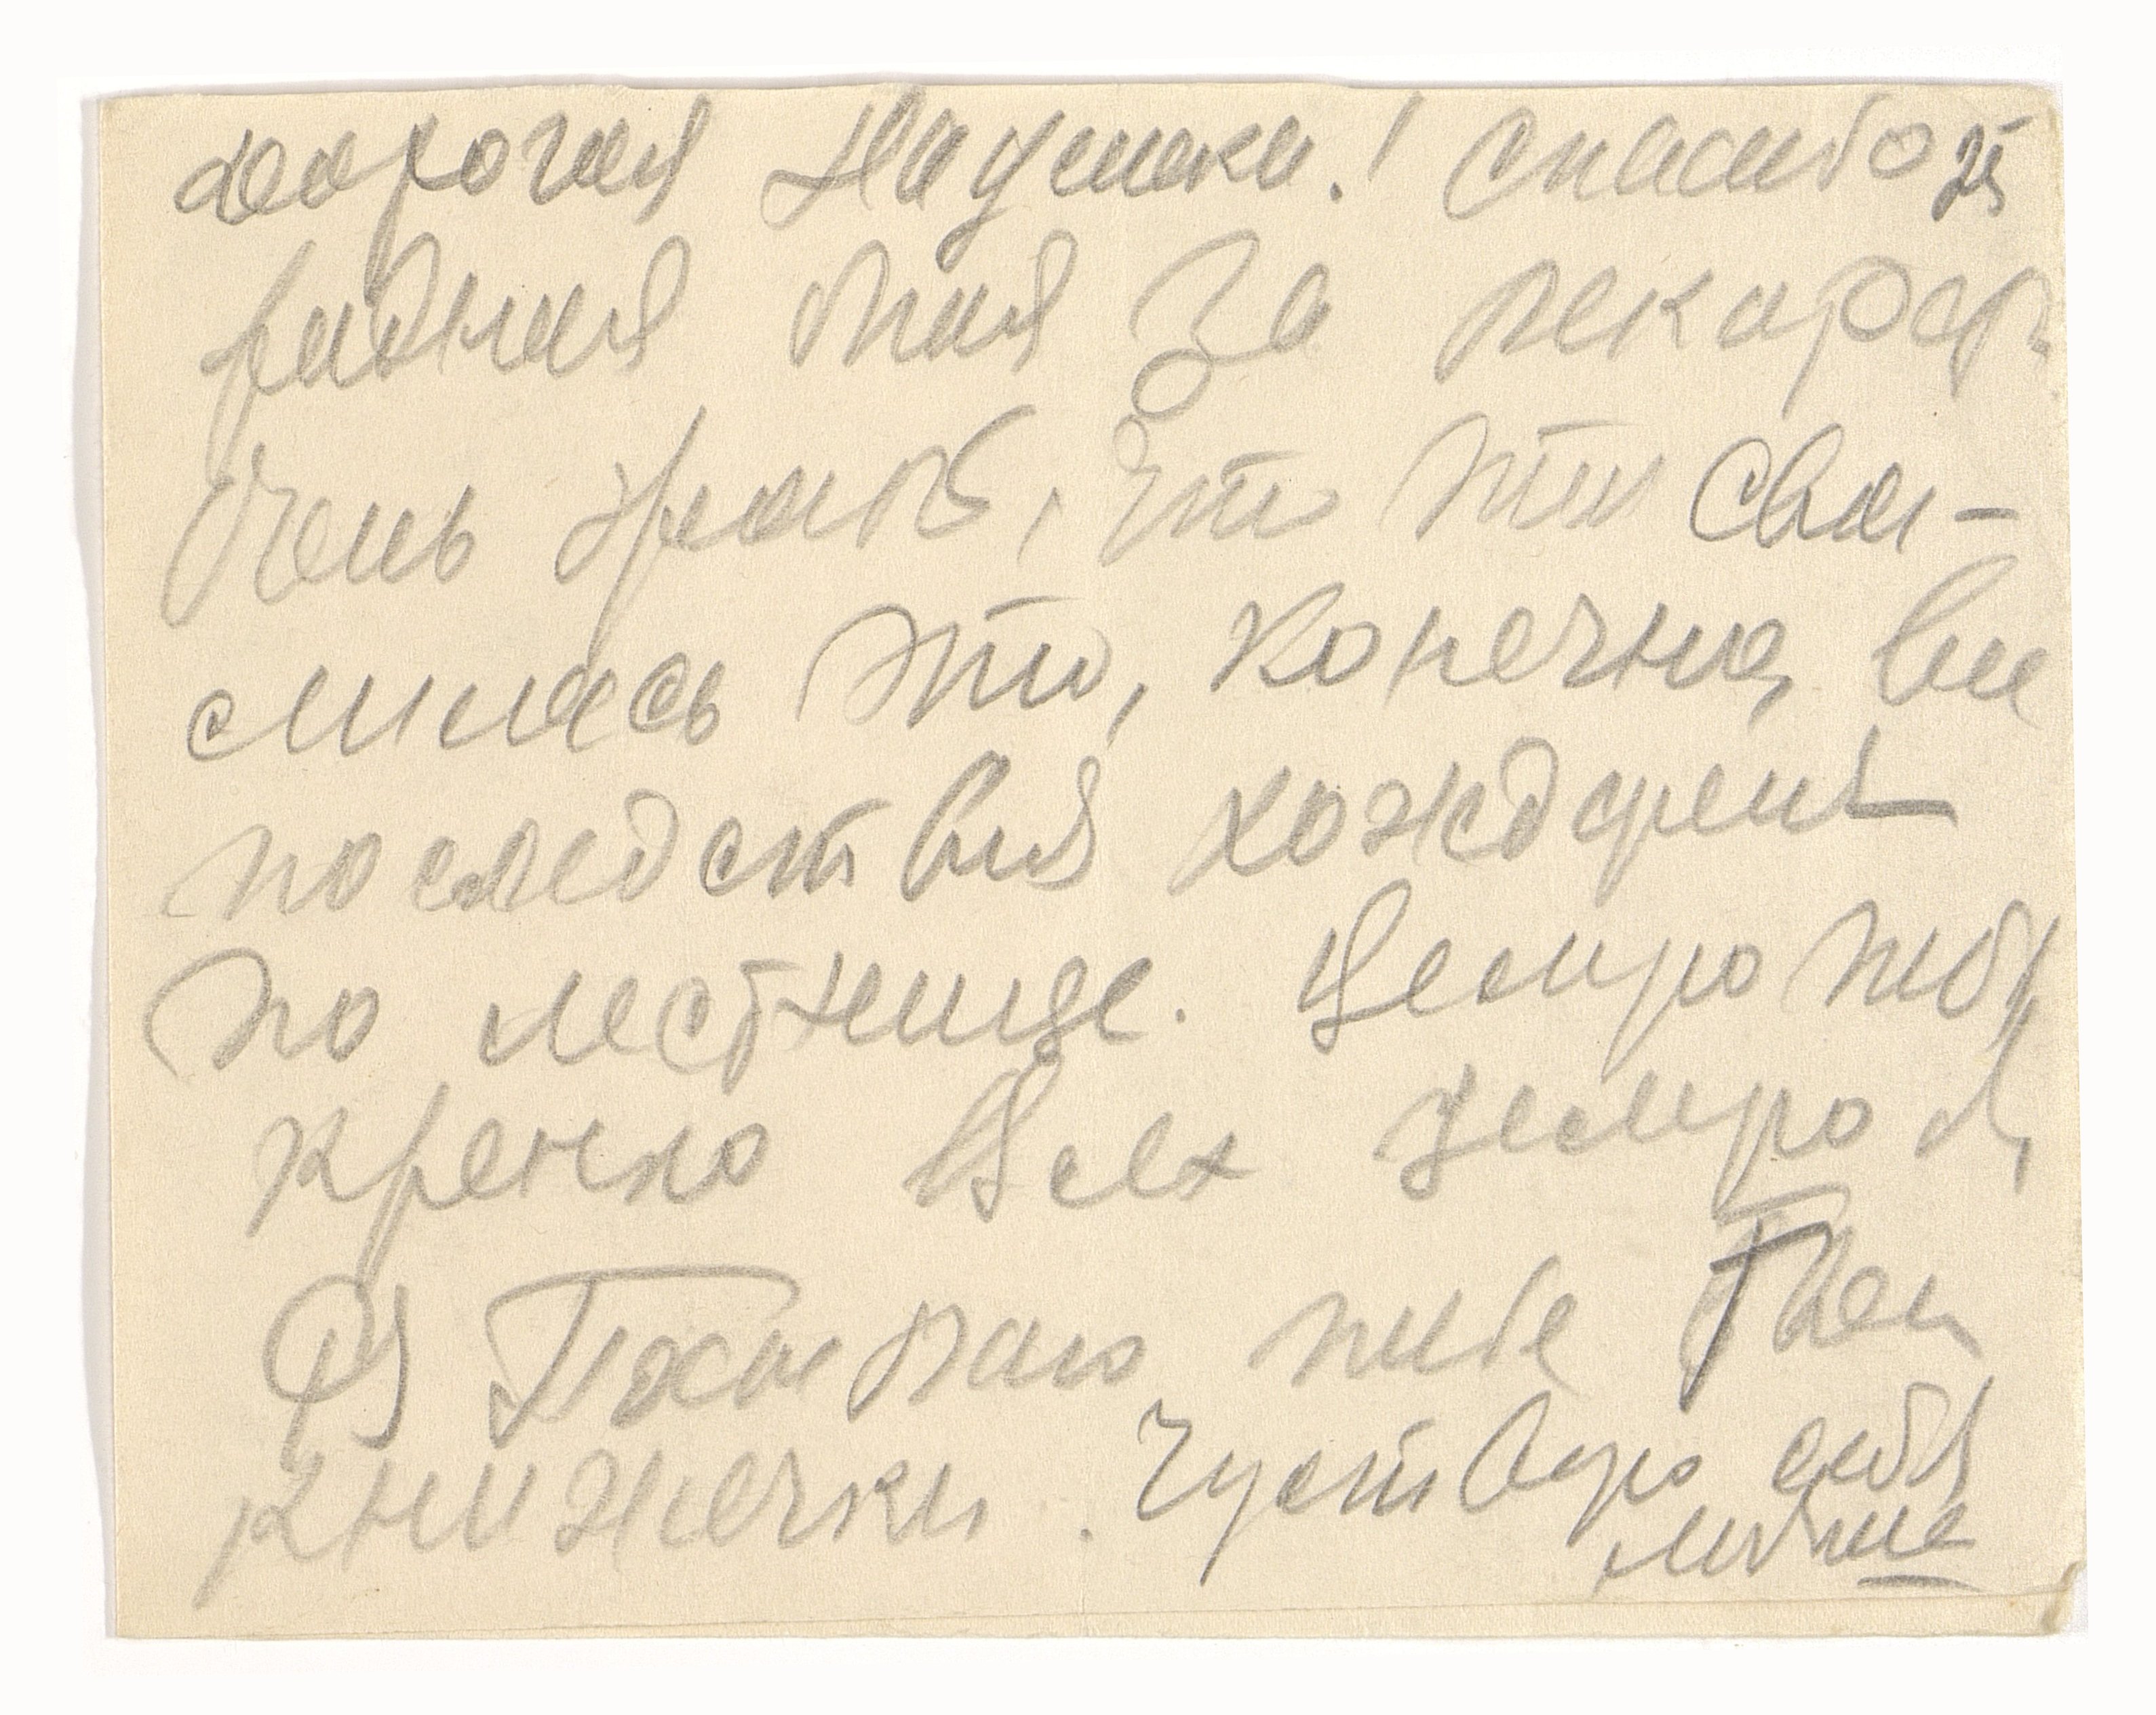 дорогая Надюшка! Спасибо
родная моя за лекарс
Очень жаль, что ты сва-
лилась это, конечно, все
последствия хождения
по лестнице. Целую тебя
крепко Всех целую
PS Посылаю тебе твои
книжечки. Чуствую себя
лучше